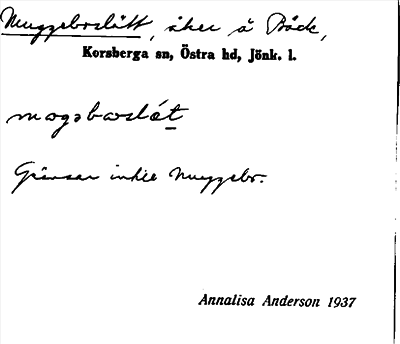 Muggeboslätt, åker å Bäck,
Korsberga sn, Östra hd, Jönk. l.
mogəboslǽt
Gränsar intill Muggebo.
Annalisa Anderson 1937